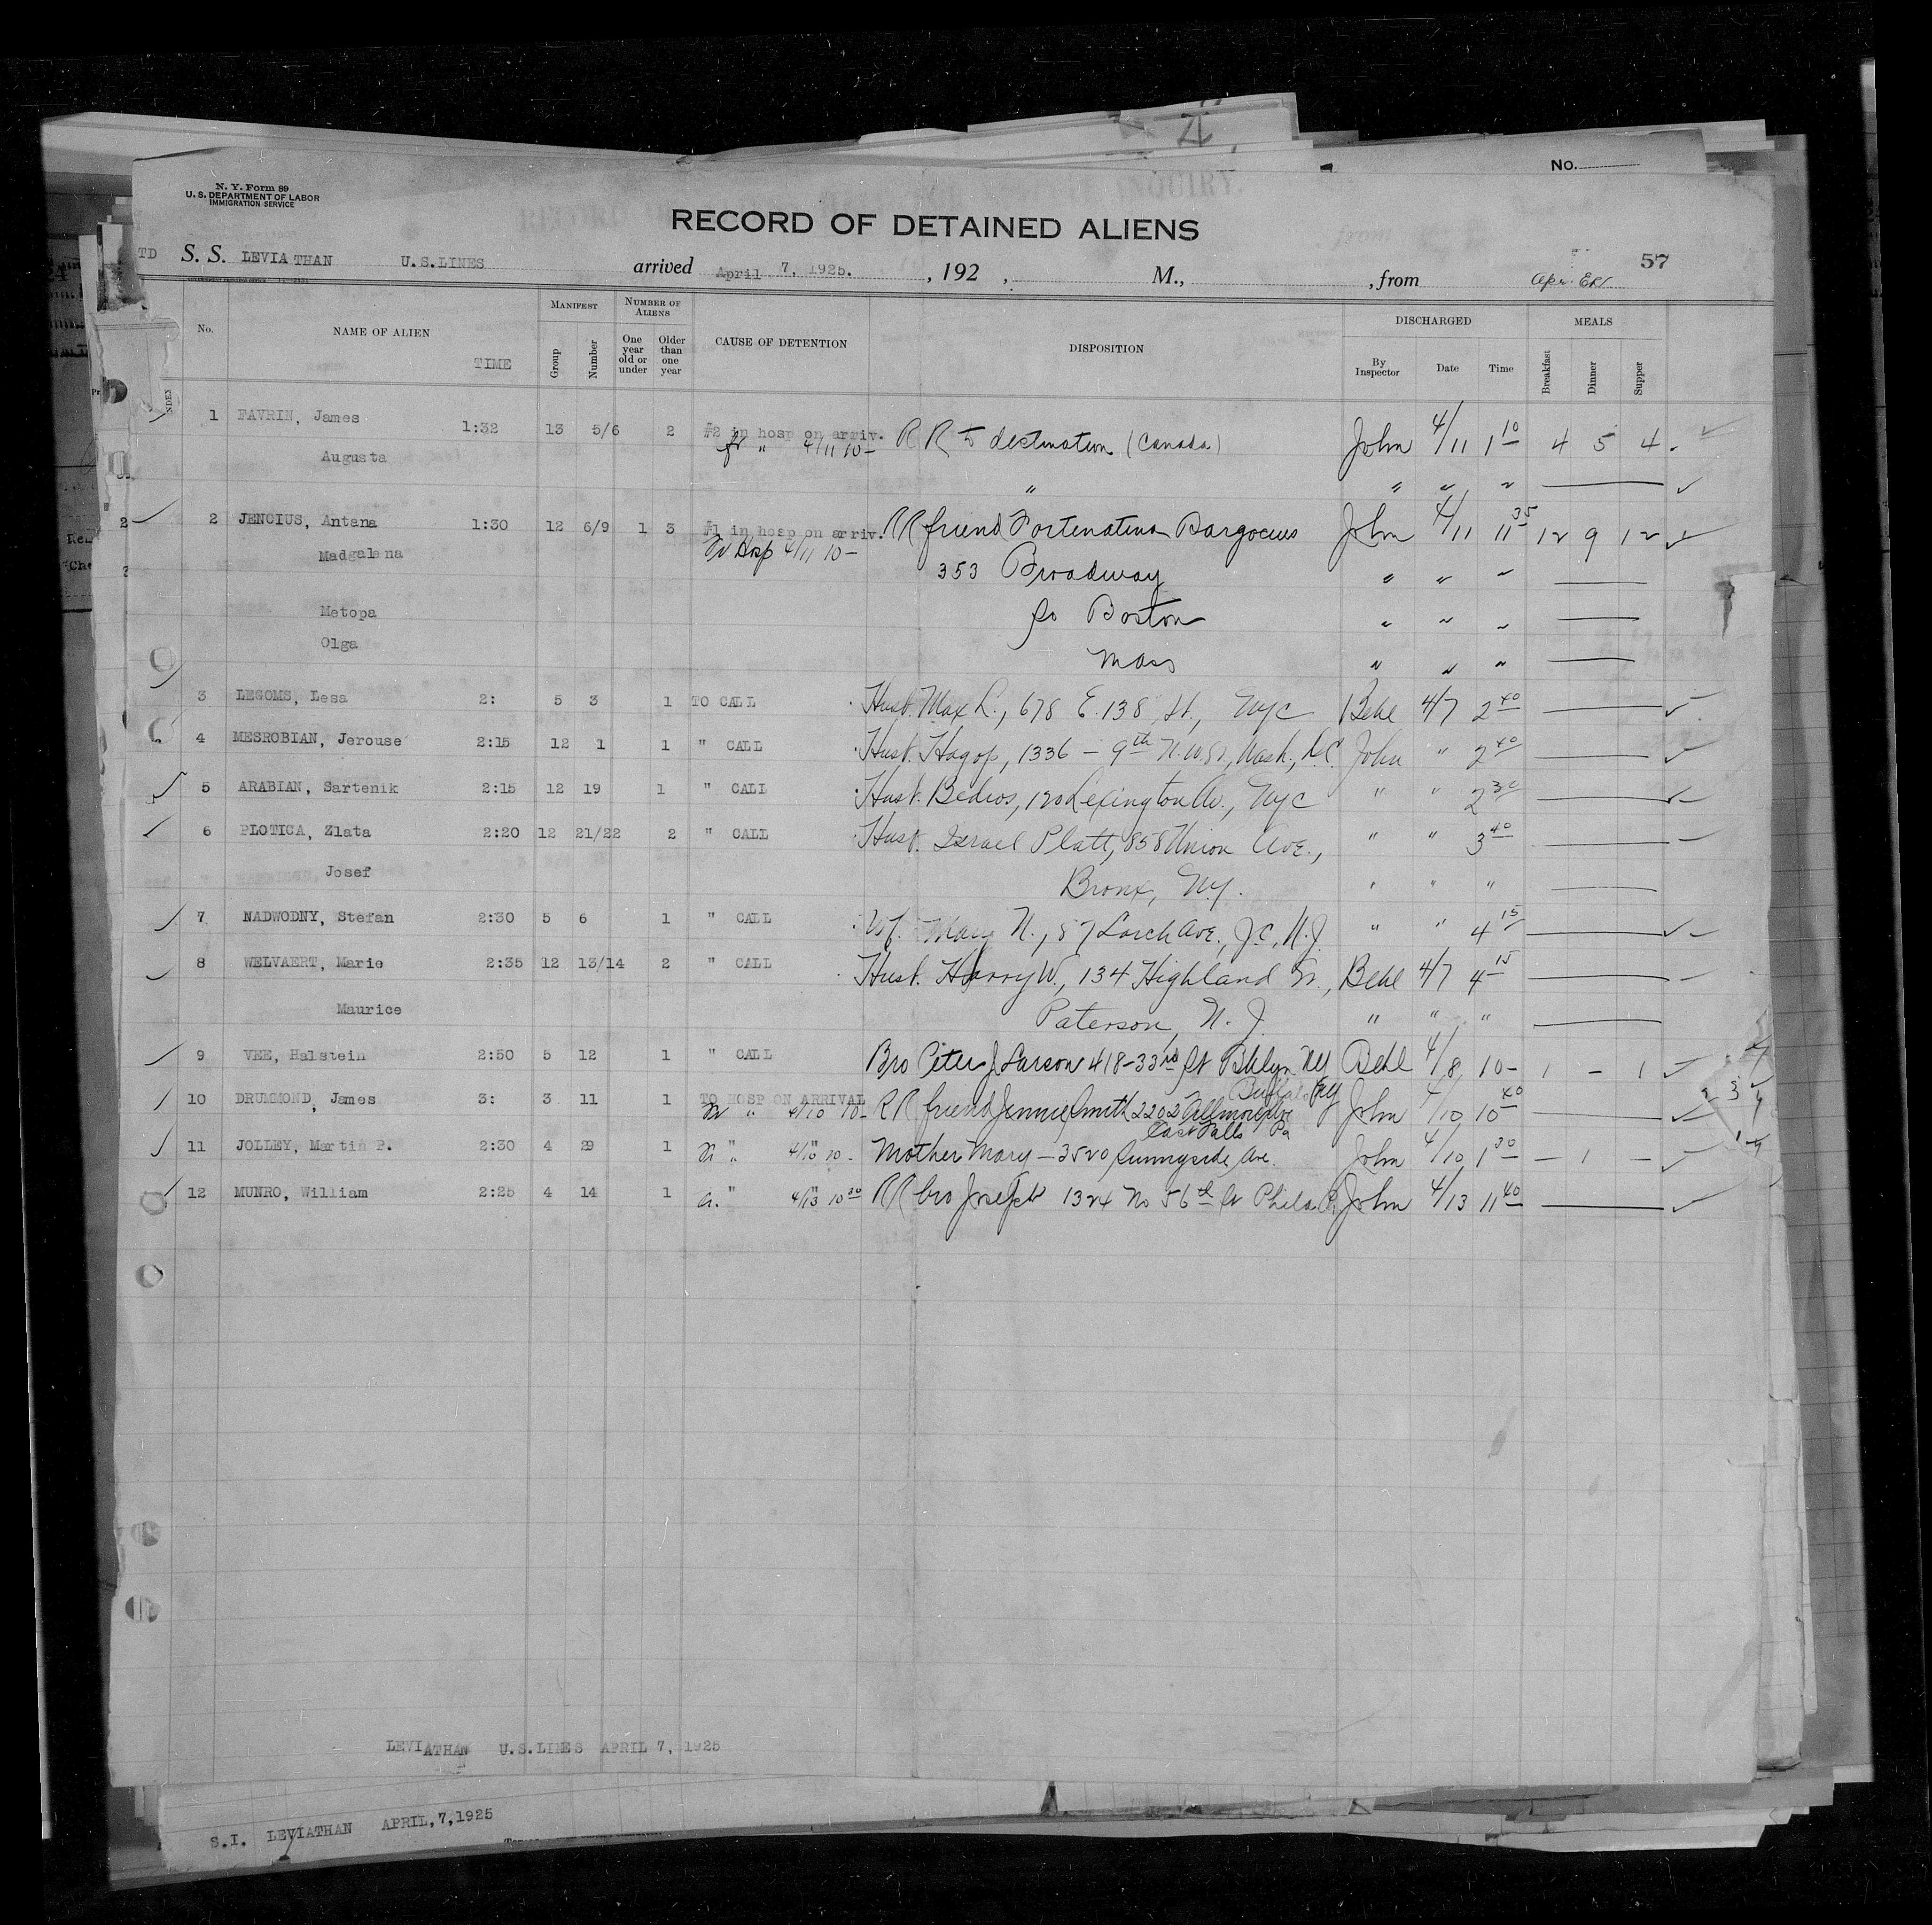 No.
N. Y. Form 89
U. S. DEPARTMENT OF LABOR
IMMIGRATION SERVICE
RECORD OF DETAINED ALIENS
TD S. S. LEVIATHAN U.S.LINES arrived April 7, 1925. , 192 , M., , from 57
No. NAME OF ALIEN TIME MANIFEST Group Number NUMBER OF ALIENS One year old or under Older than one year CAUSE OF DETENTION DISPOSITION DISCHARGED By Inspector Date Time MEALS Breakfast Dinner Supper
1 FAVRIN, James 1:32 13 5/6 2 #2 in hosp on arriv. R R to destination (Canada) John 4/11 1 10 4 5 4
" 4/11 10-
Augusta " " " "
2 JENCIUS, Antana 1:30 12 6/9 1 3 #1 in hosp on arriv. RR friend Fortenatina Bargocius John 4/11 11 35 12 9 12
Hosp 4/11 10-
Madgalena 353 Broadway " " "
Metopa So Boston " " "
Olga Mass " " "
3 LEGOMS, Lesa 2: 5 3 1 TO CALL Husb. Max L., 678 E. 138 St., NYC Behl 4/7 2 40
4 MESROBIAN, Jerouse 2:15 12 1 1 " CALL Husb. Hagop, 1336 - 9th N.W. St., Wash., D.C. John " 2 40
5 ARABIAN, Sartenik 2:15 12 19 1 " CALL Husb. Bedros, 120 Lexington Av., NYC " " 2 30
6 PLOTICA, Zlata 2:20 12 21/22 2 " CALL Husb. Israel Platt, 858 Union Ave., " " 3 40
Josef Bronx, N.Y. " " "
7 NADWODNY, Stefan 2:30 5 6 1 " CALL Wf. Mary N., 87 Lorch Ave., J.C., N.J. " " 4 15
8 WELVAERT, Marie 2:35 12 13/14 2 " CALL Husb. Harry W., 134 Highland St., Behl 4/7 4 15
Maurice Paterson, N. J. " " "
9 VEE, Halstein 2:50 5 12 1 " CALL Bro Peter J Larson 418-33rd St Bklyn NY Behl 4/8 10- 1 - 1
10 DRUMMOND, James 3: 3 11 1 TO HOSP ON ARRIVAL RR friend Jennie Smith 2202 Fillmore Ave Buffalo NY John 4/10 10 40
" 4/10 10-
11 JOLLEY, Martin P. 2:30 4 29 1 " 4/10 10- Mother Mary - 3520 Sunnyside Ave. East Falls Pa John 4/10 1 30 - 1 -
12 MUNRO, William 2:25 4 14 1 " 4/13 10 30 RR bro Joseph 1324 No 56th St Phila Pa John 4/13 11 40
LEVIATHAN U.S.LINES APRIL 7, 1925
S.I. LEVIATHAN APRIL,7,1925